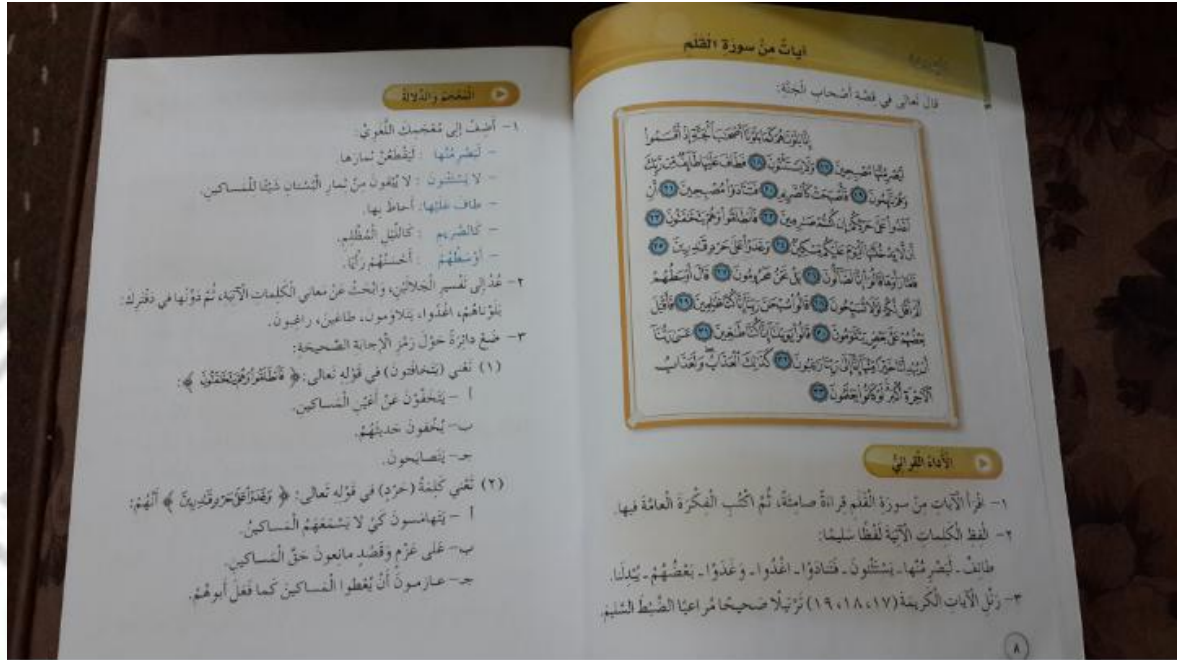 آياتٌ مِنْ سورَةِ الْقَلَمِ
قالَ تَعالى في قِصَّةِ أَصْحابِ الْجَنَّةِ:
إِنَّا بَلَوْنَاهُمْ كَمَا بَلَوْنَا أَصْحَابَ الْجَنَّةِ إِذْ أَقْسَمُوا
لَيَصْرِمُنَّهَا مُصْبِحِينَ ١٧ وَلَا يَسْتَثْنُونَ ١٨ فَطَافَ عَلَيْهَا طَائِفٌ مِنْ رَبِّكَ
وَهُمْ نَائِمُونَ ١٩ فَأَصْبَحَتْ كَالصَّرِيمِ ٢٠ فَتَنَادَوْا مُصْبِحِينَ ٢١ أَنِ
اغْدُوا عَلَى حَرْثِكُمْ إِنْ كُنْتُمْ صَارِمِينَ ٢٢ فَانْطَلَقُوا وَهُمْ يَتَخَافَتُونَ ٢٣
أَنْ لَا يَدْخُلَنَّهَا الْيَوْمَ عَلَيْكُمْ مِسْكِينٌ ٢٤ وَغَدَوْا عَلَى حَرْدٍ قَادِرِينَ ٢٥
فَلَمَّا رَأَوْهَا قَالُوا إِنَّا لَضَالُّونَ ٢٦ بَلْ نَحْنُ مَحْرُومُونَ ٢٧ قَالَ أَوْسَطُهُمْ
أَلَمْ أَقُلْ لَكُمْ لَوْلَا تُسَبِّحُونَ ٢٨ قَالُوا سُبْحَانَ رَبِّنَا إِنَّا كُنَّا ظَالِمِينَ ٢٩ فَأَقْبَلَ
بَعْضُهُمْ عَلَى بَعْضٍ يَتَلَاوَمُونَ ٣٠ قَالُوا يَا وَيْلَنَا إِنَّا كُنَّا طَاغِينَ ٣١ عَسَى رَبُّنَا
أَنْ يُبْدِلَنَا خَيْرًا مِنْهَا إِنَّا إِلَى رَبِّنَا رَاغِبُونَ ٣٢ كَذَلِكَ الْعَذَابُ وَلَعَذَابُ
الْآخِرَةِ أَكْبَرُ لَوْ كَانُوا يَعْلَمُونَ ٣٣
الْأَداءُ الْقُرْآنِيُّ
١- اِقْرَأِ الْآياتِ مِنْ سورَةِ الْقَلَمِ قِراءَةً صامِتَةً، ثُمَّ اكْتُبِ الْفِكْرَةَ الْعامَّةَ فيها.
٢- الْفِظِ الْكَلِماتِ الْآتِيَةَ لَفْظًا سَليمًا:
طائِفٌ - لَيَصْرِمُنَّها - يَسْتَثْنونَ - فَتَنادَوْا - اغْدُوا - وَغَدَوْا - بَعْضُهُمْ - يُبْدِلَنا.
٣- رَتِّلِ الْآياتِ الْكَريمَةَ (١٧، ١٨، ١٩) تَرْتيلًا صَحيحًا مُراعِيًا الضَّبْطَ السَّليمَ.
٨
الْمُعْجَمُ وَالدِّلالَةُ
١- أَضِفْ إِلى مُعْجَمِكَ اللُّغَوِيِّ:
- لَيَصْرِمُنَّها : لَيَقْطَعُنَّ ثِمارَها.
- لا يَسْتَثْنونَ : لا يُبْقونَ مِنْ ثِمارِ الْبُسْتانِ شَيْئًا لِلْمَساكينِ.
- طافَ عَلَيْها: أَحاطَ بِها.
- كَالصَّريمِ : كَاللَّيْلِ الْمُظْلِمِ.
- أَوْسَطُهُمْ : أَحْسَنُهُمْ رَأْيًا.
٢- عُدْ إِلى تَفْسيرِ الْجَلالَيْنِ، وَابْحَثْ عَنْ مَعاني الْكَلِماتِ الْآتِيَةِ، ثُمَّ دَوِّنْها في دَفْتَرِكَ:
بَلَوْناهُمْ، اغْدُوا، يَتَلاوَمونَ، طاغينَ، راغِبونَ.
٣- ضَعْ دائِرَةً حَوْلَ رَمْزِ الْإِجابَةِ الصَّحيحَةِ:
(١) تَعْني (يَتَخافَتونَ) في قَوْلِهِ تَعالى: ﴿ فَانْطَلَقُوا وَهُمْ يَتَخَافَتُونَ ﴾:
أ - يَتَخَفَّوْنَ عَنْ أَعْيُنِ الْمَساكينِ.
ب- يُخْفونَ حَديثَهُمْ.
جـ- يَتَصايَحونَ.
(٢) تَعْني كَلِمَةُ (حَرْدٍ) في قَوْلِهِ تَعالى: ﴿ وَغَدَوْا عَلَى حَرْدٍ قَادِرِينَ ﴾ أَنَّهُمْ:
أ - يَتَهامَسونَ كَيْ لا يَسْمَعَهُمُ الْمَساكينُ.
ب- عَلى عَزْمٍ وَقَصْدٍ مانِعونَ حَقَّ الْمَساكينِ.
جـ- عازِمونَ أَنْ يُعْطوا الْمَساكينَ كَما فَعَلَ أَبوهُمْ.